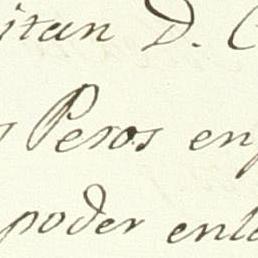 itan D. C
s Pesos en
poder enl